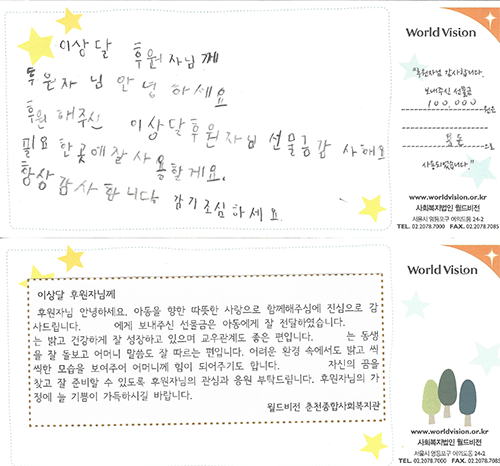 이상달 후원자님께
후원자 님 안녕 하세요
후원 해주신 이상달후원자님 선물금감 사해요
필요 한곳에잘사 용할게요.
항상감사 합니다 감기조심하세요.
World Vision
"후원자님 감사합니다.
보내주신 선물금
100,000 원은
으로
사용되었습니다."
www.worldvision.or.kr
사회복지법인 월드비전
서울시 영등포구 여의도동 24-2
TEL. 02.2078.7000 FAX. 02.2078.7085
이상달 후원자님께
후원자님 안녕하세요. 아동을 향한 따뜻한 사랑으로 함께해주심에 진심으로 감
사드립니다. 에게 보내주신 선물금은 아동에게 잘 전달하였습니다.
는 밝고 건강하게 잘 성장하고 있으며 교우관계도 좋은 편입니다. 는 동생
을 잘 돌보고 어머니 말씀도 잘 따르는 편입니다. 어려운 환경 속에서도 밝고 씩
씩한 모습을 보여주어 어머니께 힘이 되어주기도 합니다. 자신의 꿈을
찾고 잘 준비할 수 있도록 후원자님의 관심과 응원 부탁드립니다. 후원자님의 가
정에 늘 기쁨이 가득하시길 바랍니다.
월드비전 춘천종합사회복지관
World Vision
www.worldvision.or.kr
사회복지법인 월드비전
서울시 영등포구 여의도동 24-2
TEL. 02.2078.7000 FAX. 02.2078.7085